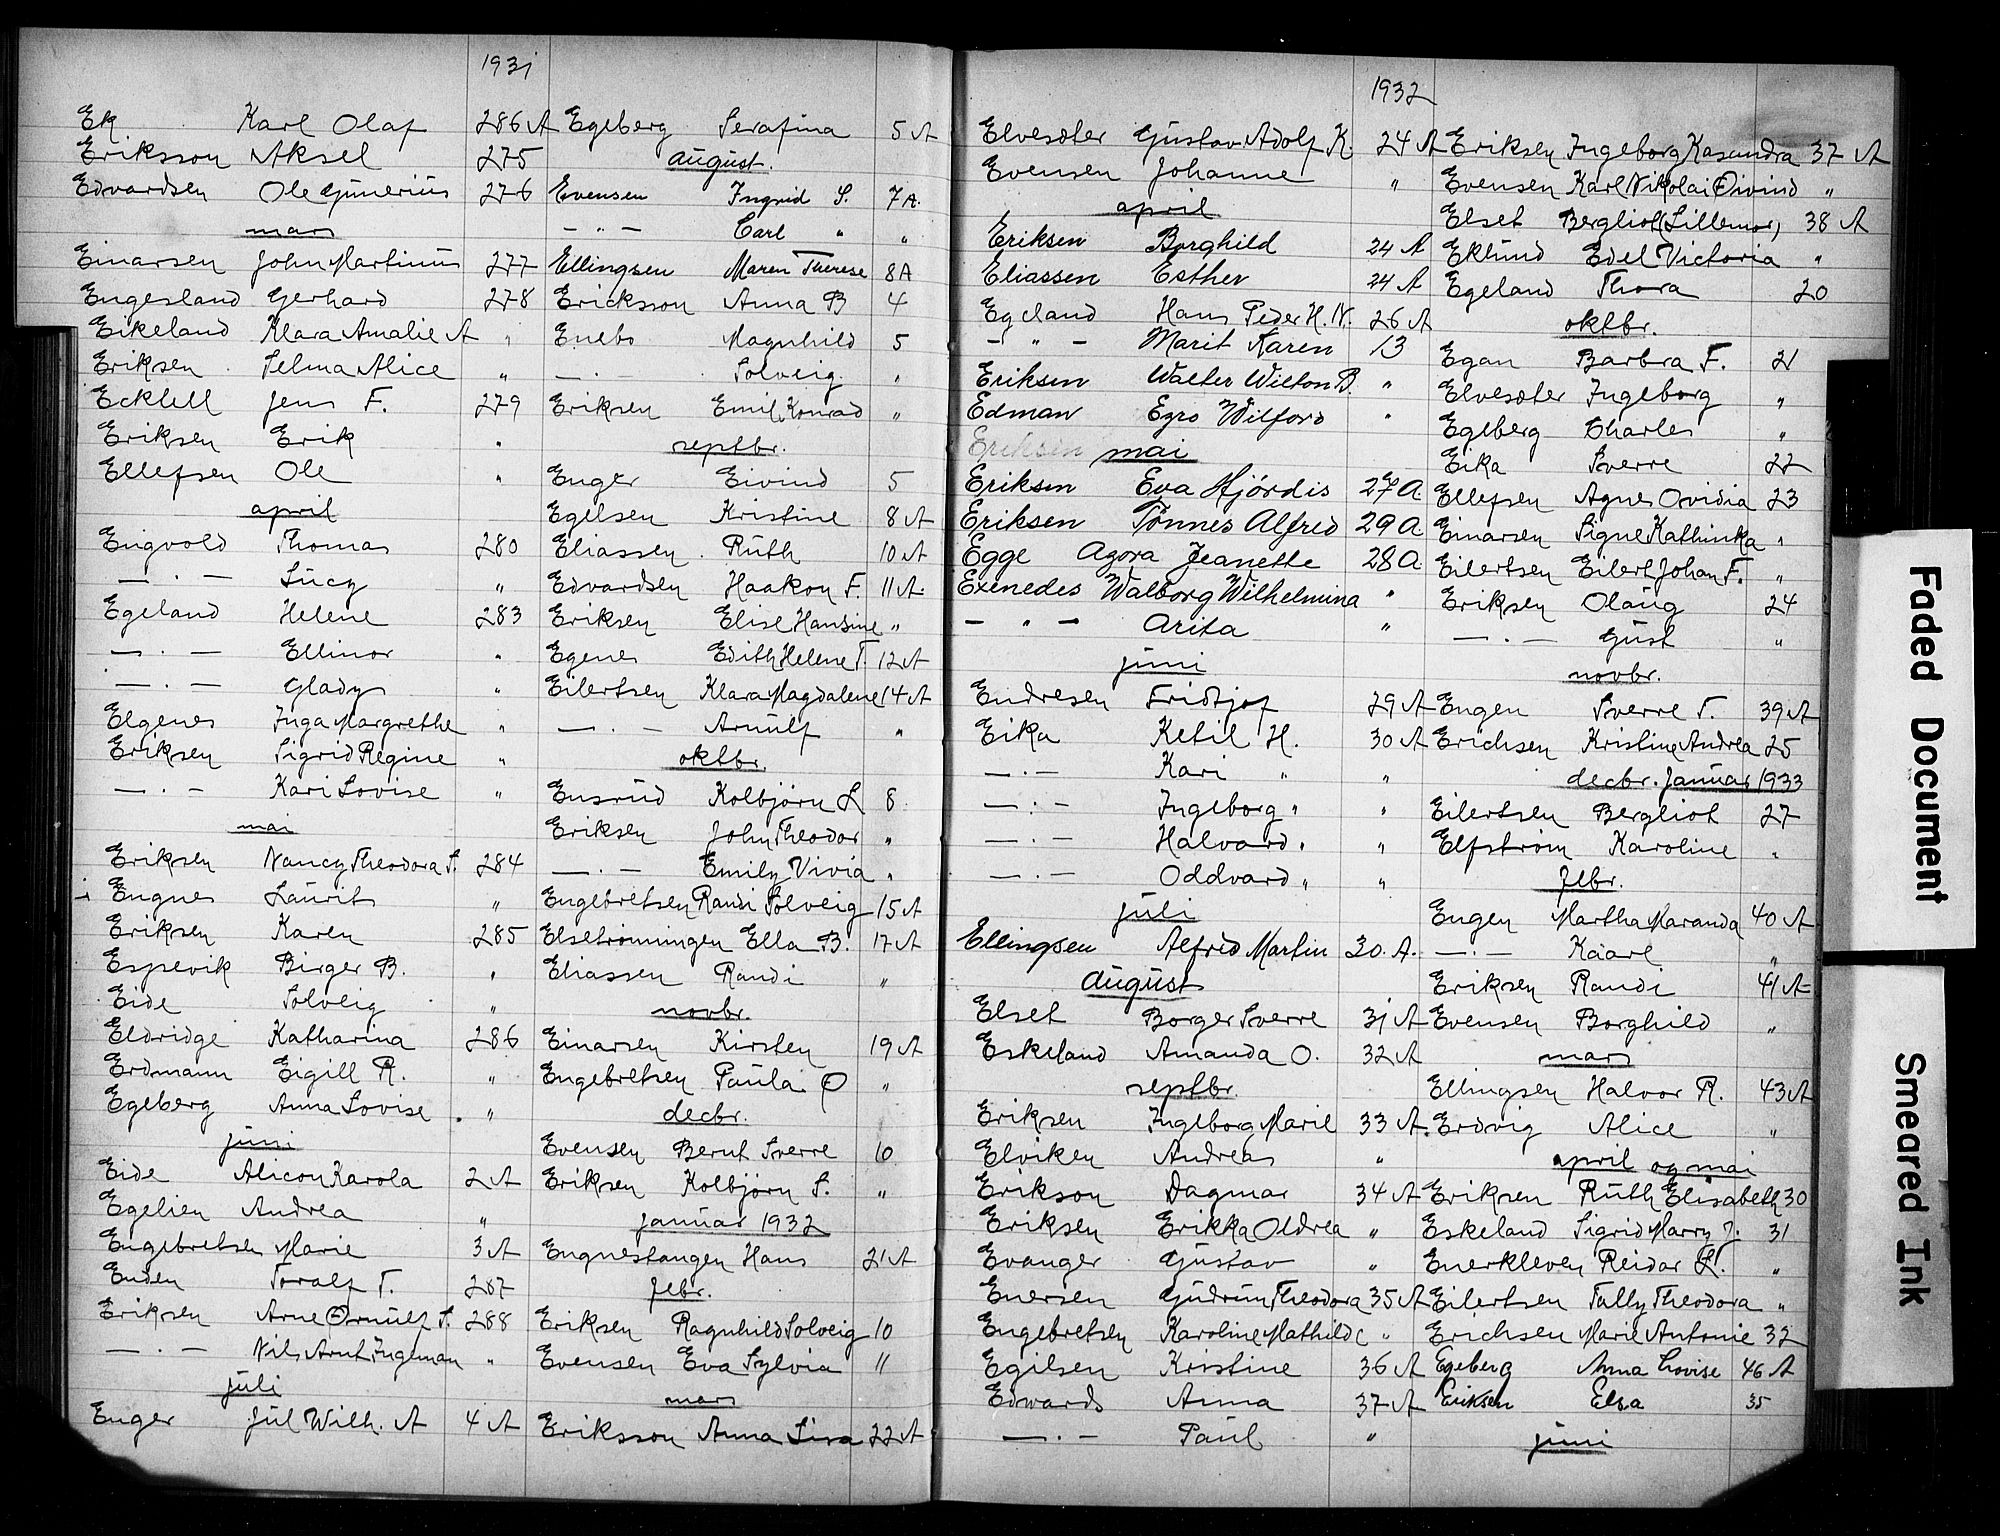 1931
Ek Karl Olaf 286 A
Eriksson Aksel 275
Edvardsen Ole Gunerius 276
mars
Einarsen John Martinus 277
Engesland Gerhard 278
Eikeland Klara Amalie A "
Eriksen Selma Alice "
Ecklell Jens F. 279
Eriksen Erik "
Ellefsen Ole "
april
Engvold Thomas 280
— . — Lucy "
Egeland Helene 283
— . — Ellinor "
— . — Gladys "
Elgenes Inga Margrethe "
Eriksen Sigrid Regine "
— . — Kari Lovise "
mai
Eriksen Nancy Theodora S. 284
Engnes Laurits "
Eriksen Karen 285
Espevik Birger B. "
Eide Solveig "
Eldridge Katharina 286
Erdmann Eigill R. "
Egeberg Anna Lovise "
juni
Eide Alicon Karola 2 A
Egelien Andrea "
Engebretsen Marie 3 A
Enden Toralf T. 287
Eriksen Arne Ørnulf S. 288
— . — Nils Arnt Ingeman "
juli
Enger Jul Wilh. A 4 A
Egeberg Serafina 5 A
august.
Evensen Ingrid S. 7 A.
— " — Carl " "
Ellingsen Maren Therese 8 A
Ericksson Anna B 4
Enebo Magnhild 5
— . Solveig "
Eriksen Emil Konrad "
septbr.
Enger Eivind 5
Egelsen Kristine 8 A
Eliassen Ruth 10 A
Edvardsen Haakon F. 11 A
Eriksen Elise Hansine "
Egenes Edith Helene T. 12 A
Eilertsen Klara Magdalene 14 A
— . — Arnulf "
oktbr.
Ensrud Kolbjørn L 8
Eriksen John Theodor "
— . — Emily Vivia "
Engebretsen Randi Solveig 15 A
Elsetrønningen Ella B. 17 A
Eliassen Randi "
novbr.
Einarsen Kirsten 19 A
Engebretsen Paula O "
decbr.
Evensen Bernt Sverre 10
Eriksen Kolbjørn S. "
januar 1932
Engnestangen Hans 21 A
febr.
Eriksen Ragnhild Solveig 10
Evensen Eva Sylvia 11
mars
Eriksson Anna Lisa 22 A
1932
Elvesæter Gustav Adolf K. 24 A
Evensen Johanne "
april
Eriksen Borghild 24 A
Eliassen Esther 24 A
Egeland Hans Peder H. N. 26 A
— " — Marit Karen 13
Eriksen Walter Wilton B. "
Edman Ezro Wilford "
Eriksen mai
Eriksen Eva Hjördis 27 A.
Eriksen Tønnes Alfred 29 A.
Egge Agora Jeanette 28 A
Exenedes Walborg Wilhelmina "
— " — Arita "
juni
Endresen Fridtjof 29 A
Eika Ketil H. 30 A
— . — Kari " "
— . — Ingeborg " "
— . — Halvard " "
— . — Oddvard " "
juli
Ellingsen Alfred Martin 30. A.
august
Elset Borger Sverre 31 A
Eskeland Amanda O. 32 A
septbr.
Eriksen Ingeborg Marie 33 A
Elviken Andreas "
Erikson Dagmar 34 A
Eriksen Erikka Oldrea "
Evanger Gustav "
Enersen Gudrun Theodora 35 A
Engebretsen Karoline Mathilde "
Egilsen Kristine 36 A
Edwards Anna 37 A
— . — Paul "
Eriksen Ingeborg Kasandra 37 A
Evensen Karl Nikolai Øivind "
Elset Bergliot (Lillemor) 38 A
Eklund Edel Victoria "
Egeland Thora 20
oktbr.
Egan Barbra F. 21
Elvesæter Ingeborg "
Egeberg Charles "
Eika Sverre 22
Ellefsen Agnes Ovidia 23
Einarsen Signe Kathinka "
Eilertsen Eilert Johan F. "
Eriksen Olaug 24
— . — Gust "
novbr.
Engen Sverre T. 39 A
Erichsen Kristine Andrea 25
decbr. Januar 1933
Eilertsen Bergliot 27
Elfstrøm Karoline "
febr.
Engen Martha Maranda 40 A
— . — Kaarl "
Eriksen Randi 41 A
Evensen Borghild "
mars
Ellingsen Halvor R. 43 A
Erdvig Alice "
april og mai
Eriksen Ruth Elisabeth 30
Eskeland Sigrid Marry J. 31
Enerkleven Reidar L. "
Eilertsen Tully Theodora "
Erichsen Marie Antonie 32
Egeberg Anna Lovise 46 A
Eriksen Elsa 35
juni
Faded Document
Smeared Ink